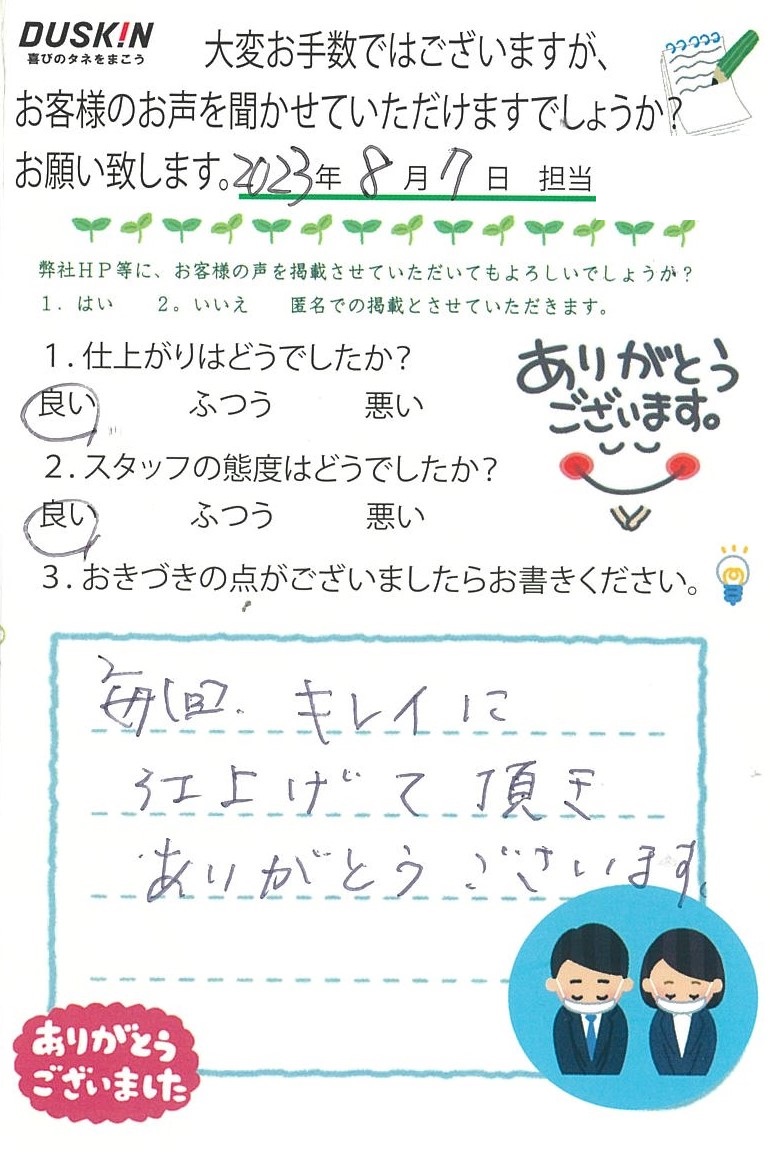 DUSK!N
喜びのタネをまこう
大変お手数ではございますが、
お客様のお声を聞かせていただけますでしょうか?
お願い致します。2023年 8月7日 担当
弊社HP等に、お客様の声を掲載させていただいてもよろしいでしょうか?
1. はい 2。いいえ 匿名での掲載とさせていただきます。
1.仕上がりはどうでしたか?
良い ふつう 悪い
ありがとう
ございます。
2.スタッフの態度はどうでしたか?
良い ふつう 悪い
3.おきづきの点がございましたらお書きください。
毎回、キレイに
仕上げて頂き
ありがとうございます。
ありがとう
ございました